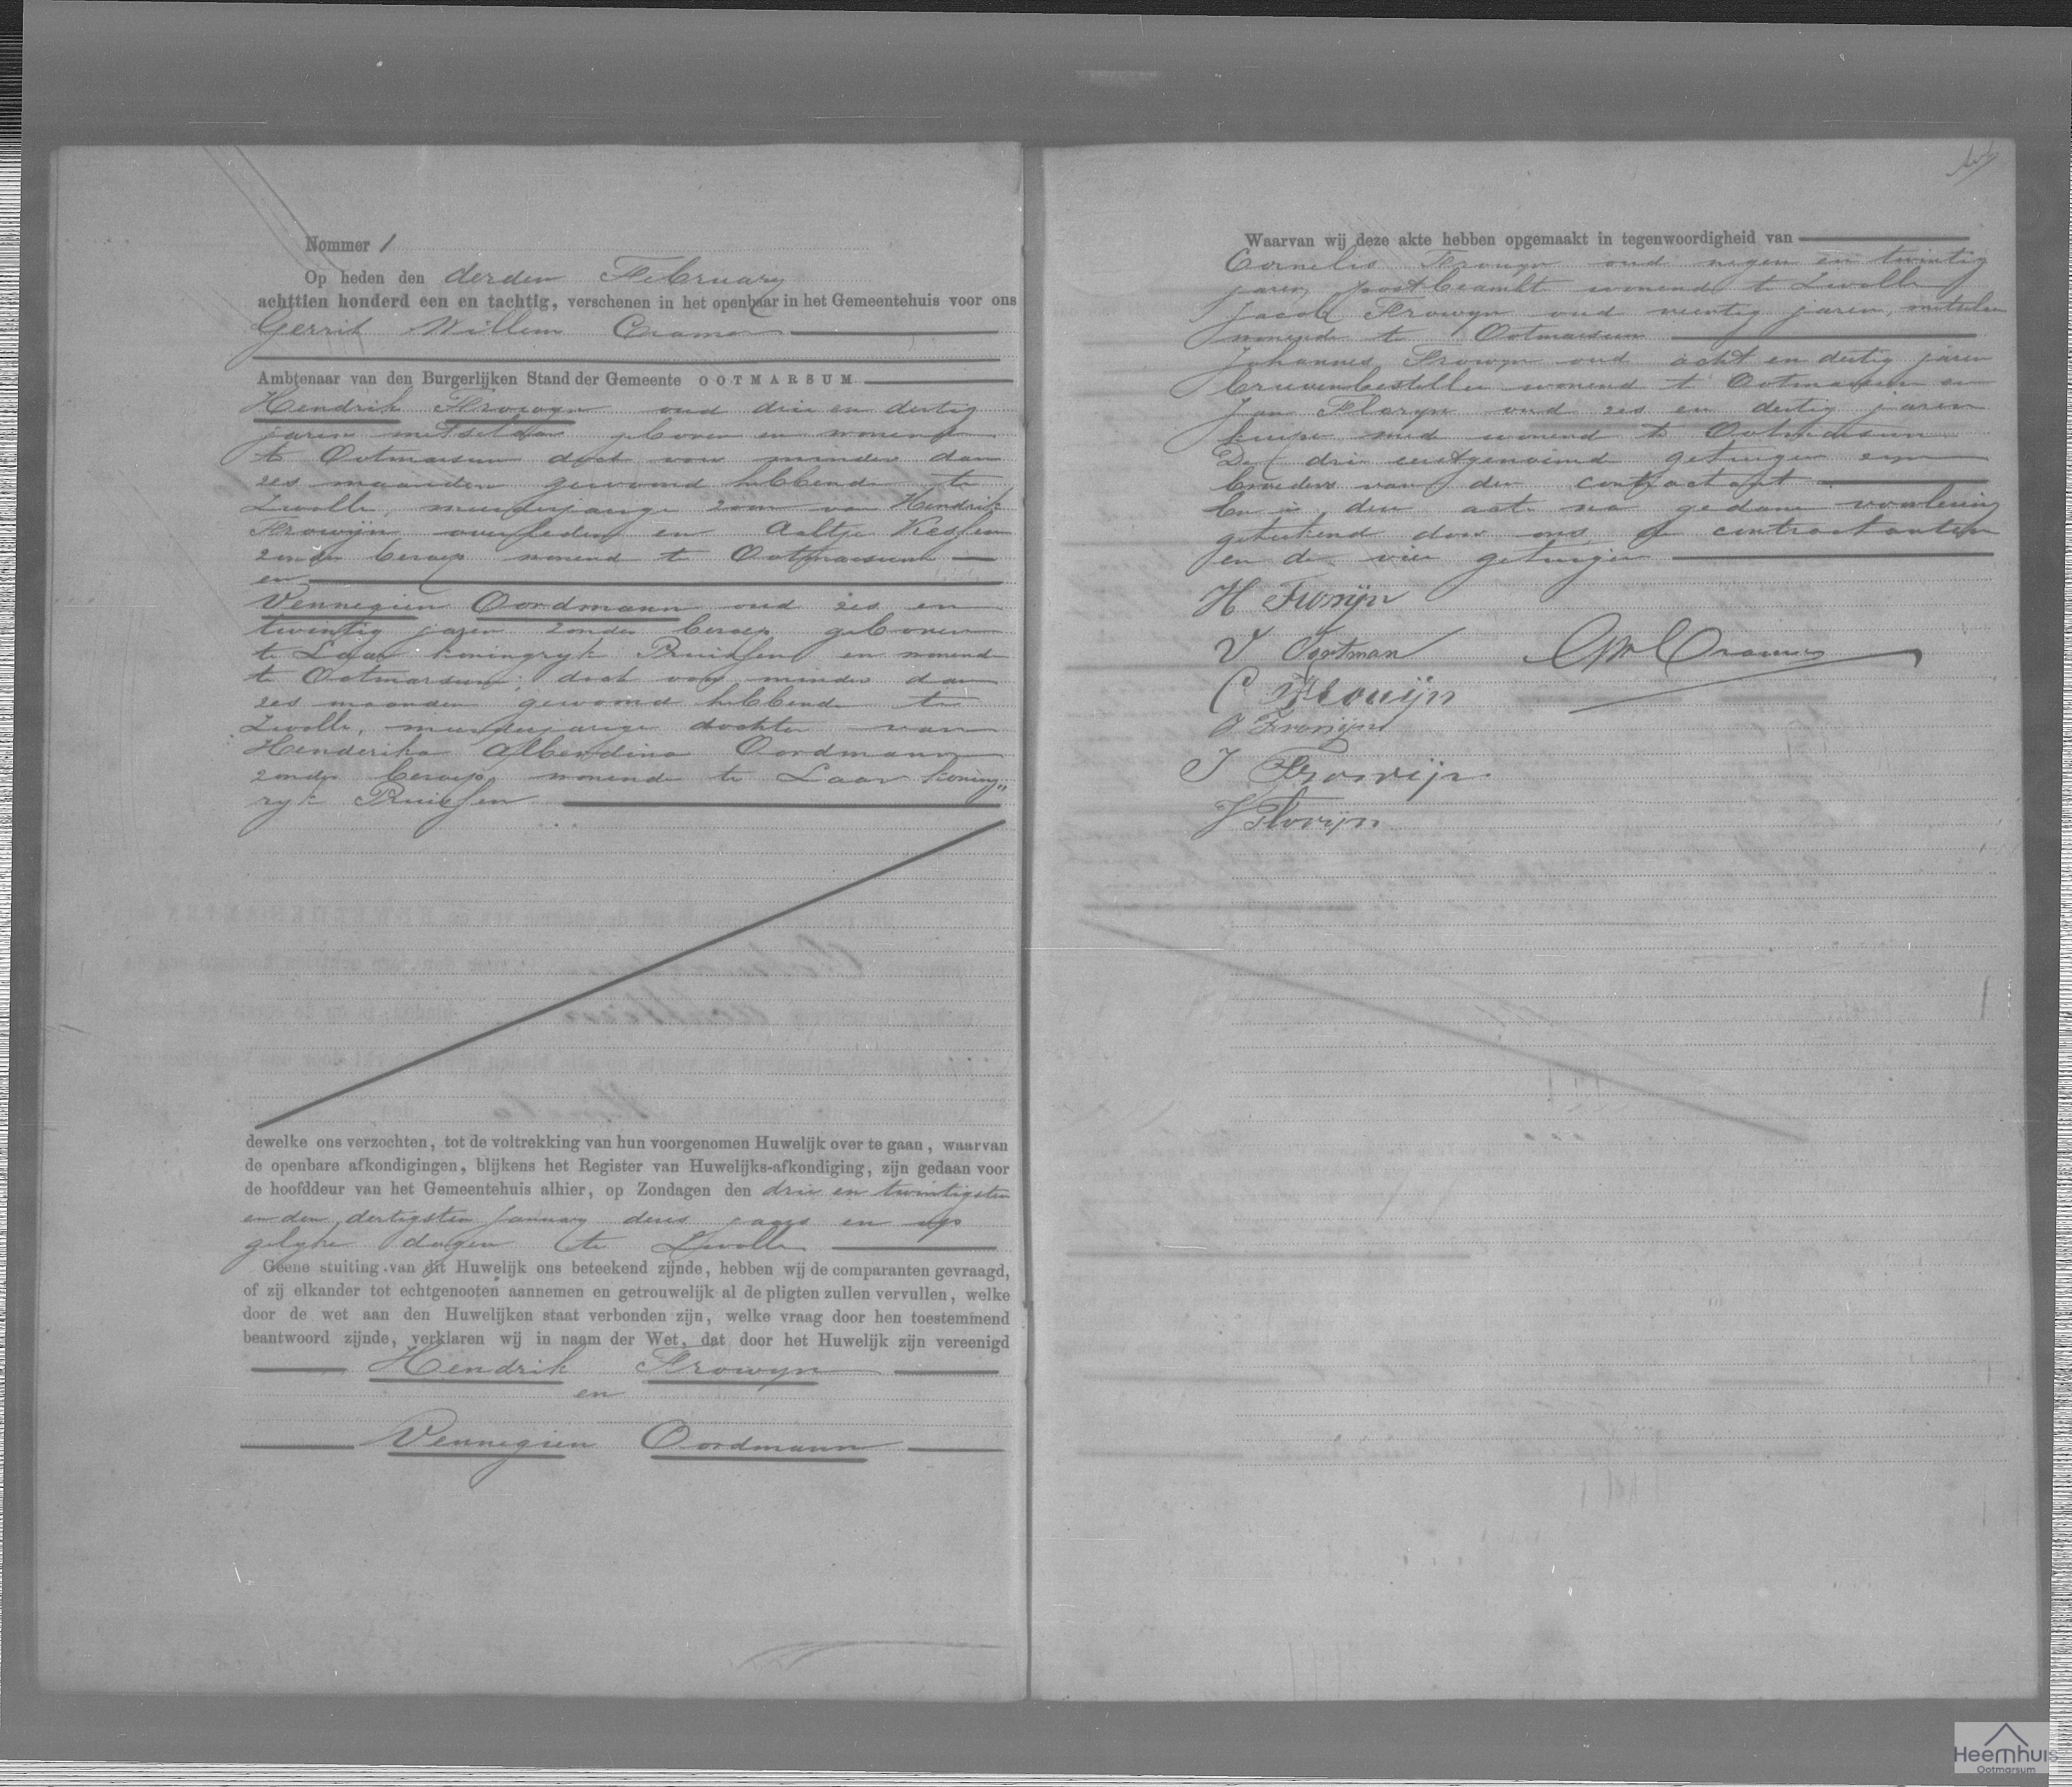 Nommer 1
Op heden den derden February
achttien honderd een en tachtig, verschenen in het openbaar in het Gemeentehuis voor ons
Gerrit Willem Cramer
Ambtenaar van den Burgerlijken Stand der Gemeente OOTMARSUM
Hendrik Frowyn oud drie en dertig
jaren metselaar geboren en wonend
te Ootmarsum doch voor minder dan
zes maanden gewoond hebbende te
Zwolle, meerderjarige zoon van Hendrik
Frowijn overleden en Aaltje
zonder beroep wonend te Ootmarsum
en
Vennegien Oordmann oud zes en
twintig jaren zonder beroep geboren
te Laar koningryk Pruissen en wonend
te Ootmarsum; doch voor minder dan
zes maanden gewoond hebbende te
Zwolle, meerderjarige dochter van
Henderika Alberdina Oordmann
zonder beroep, wonende te Laar koning„
ryk Pruissen
dewelke ons verzochten, tot de voltrekking van hun voorgenomen Huwelijk over te gaan, waarvan
de openbare afkondigingen, blijkens het Register van Huwelijks-afkondiging, zijn gedaan voor
de hoofddeur van het Gemeentehuis alhier, op Zondagen den drie en twintigsten
en den dertigsten January dezes jaars en op
gelyke dagen te Zwolle
Geene stuiting van dit Huwelijk ons beteekend zijnde, hebben wij de comparanten gevraagd,
of zij elkander tot echtgenooten aannemen en getrouwelijk al de pligten zullen vervullen, welke
door de wet aan den Huwelijken staat verbonden zijn, welke vraag door hen toestemmend
beantwoord zijnde, verklaren wij in naam der Wet, dat door het Huwelijk zijn vereenigd
Hendrik Frowyn
en
Vennegien Oordmann
Waarvan wij deze akte hebben opgemaakt in tegenwoordigheid van
Cornelis Frowyn oud negen en twintig
jaren postbeambte wonend te Zwolle
Jacob Frowyn oud veertig jaren, metselaar
wonende te Ootmarsum
Johannes Frowyn oud acht en dertig jaren
brievenbesteller wonend te Ootmarsum en
Jan Floryn oud zes en dertig jaren
wonend te Ootmarsum
De drie eerstgenoemde getuigen zyn
broeders van den contractant
En is deze acte na gedane voorlezing
geteekend door ons, de contractanten
en de vier getuigen
H Frowijn
V Oortman GWCramer
C Frowijn
J Frowijn
J Frowijn
J Florijn
Heemhuis
Ootmarsum